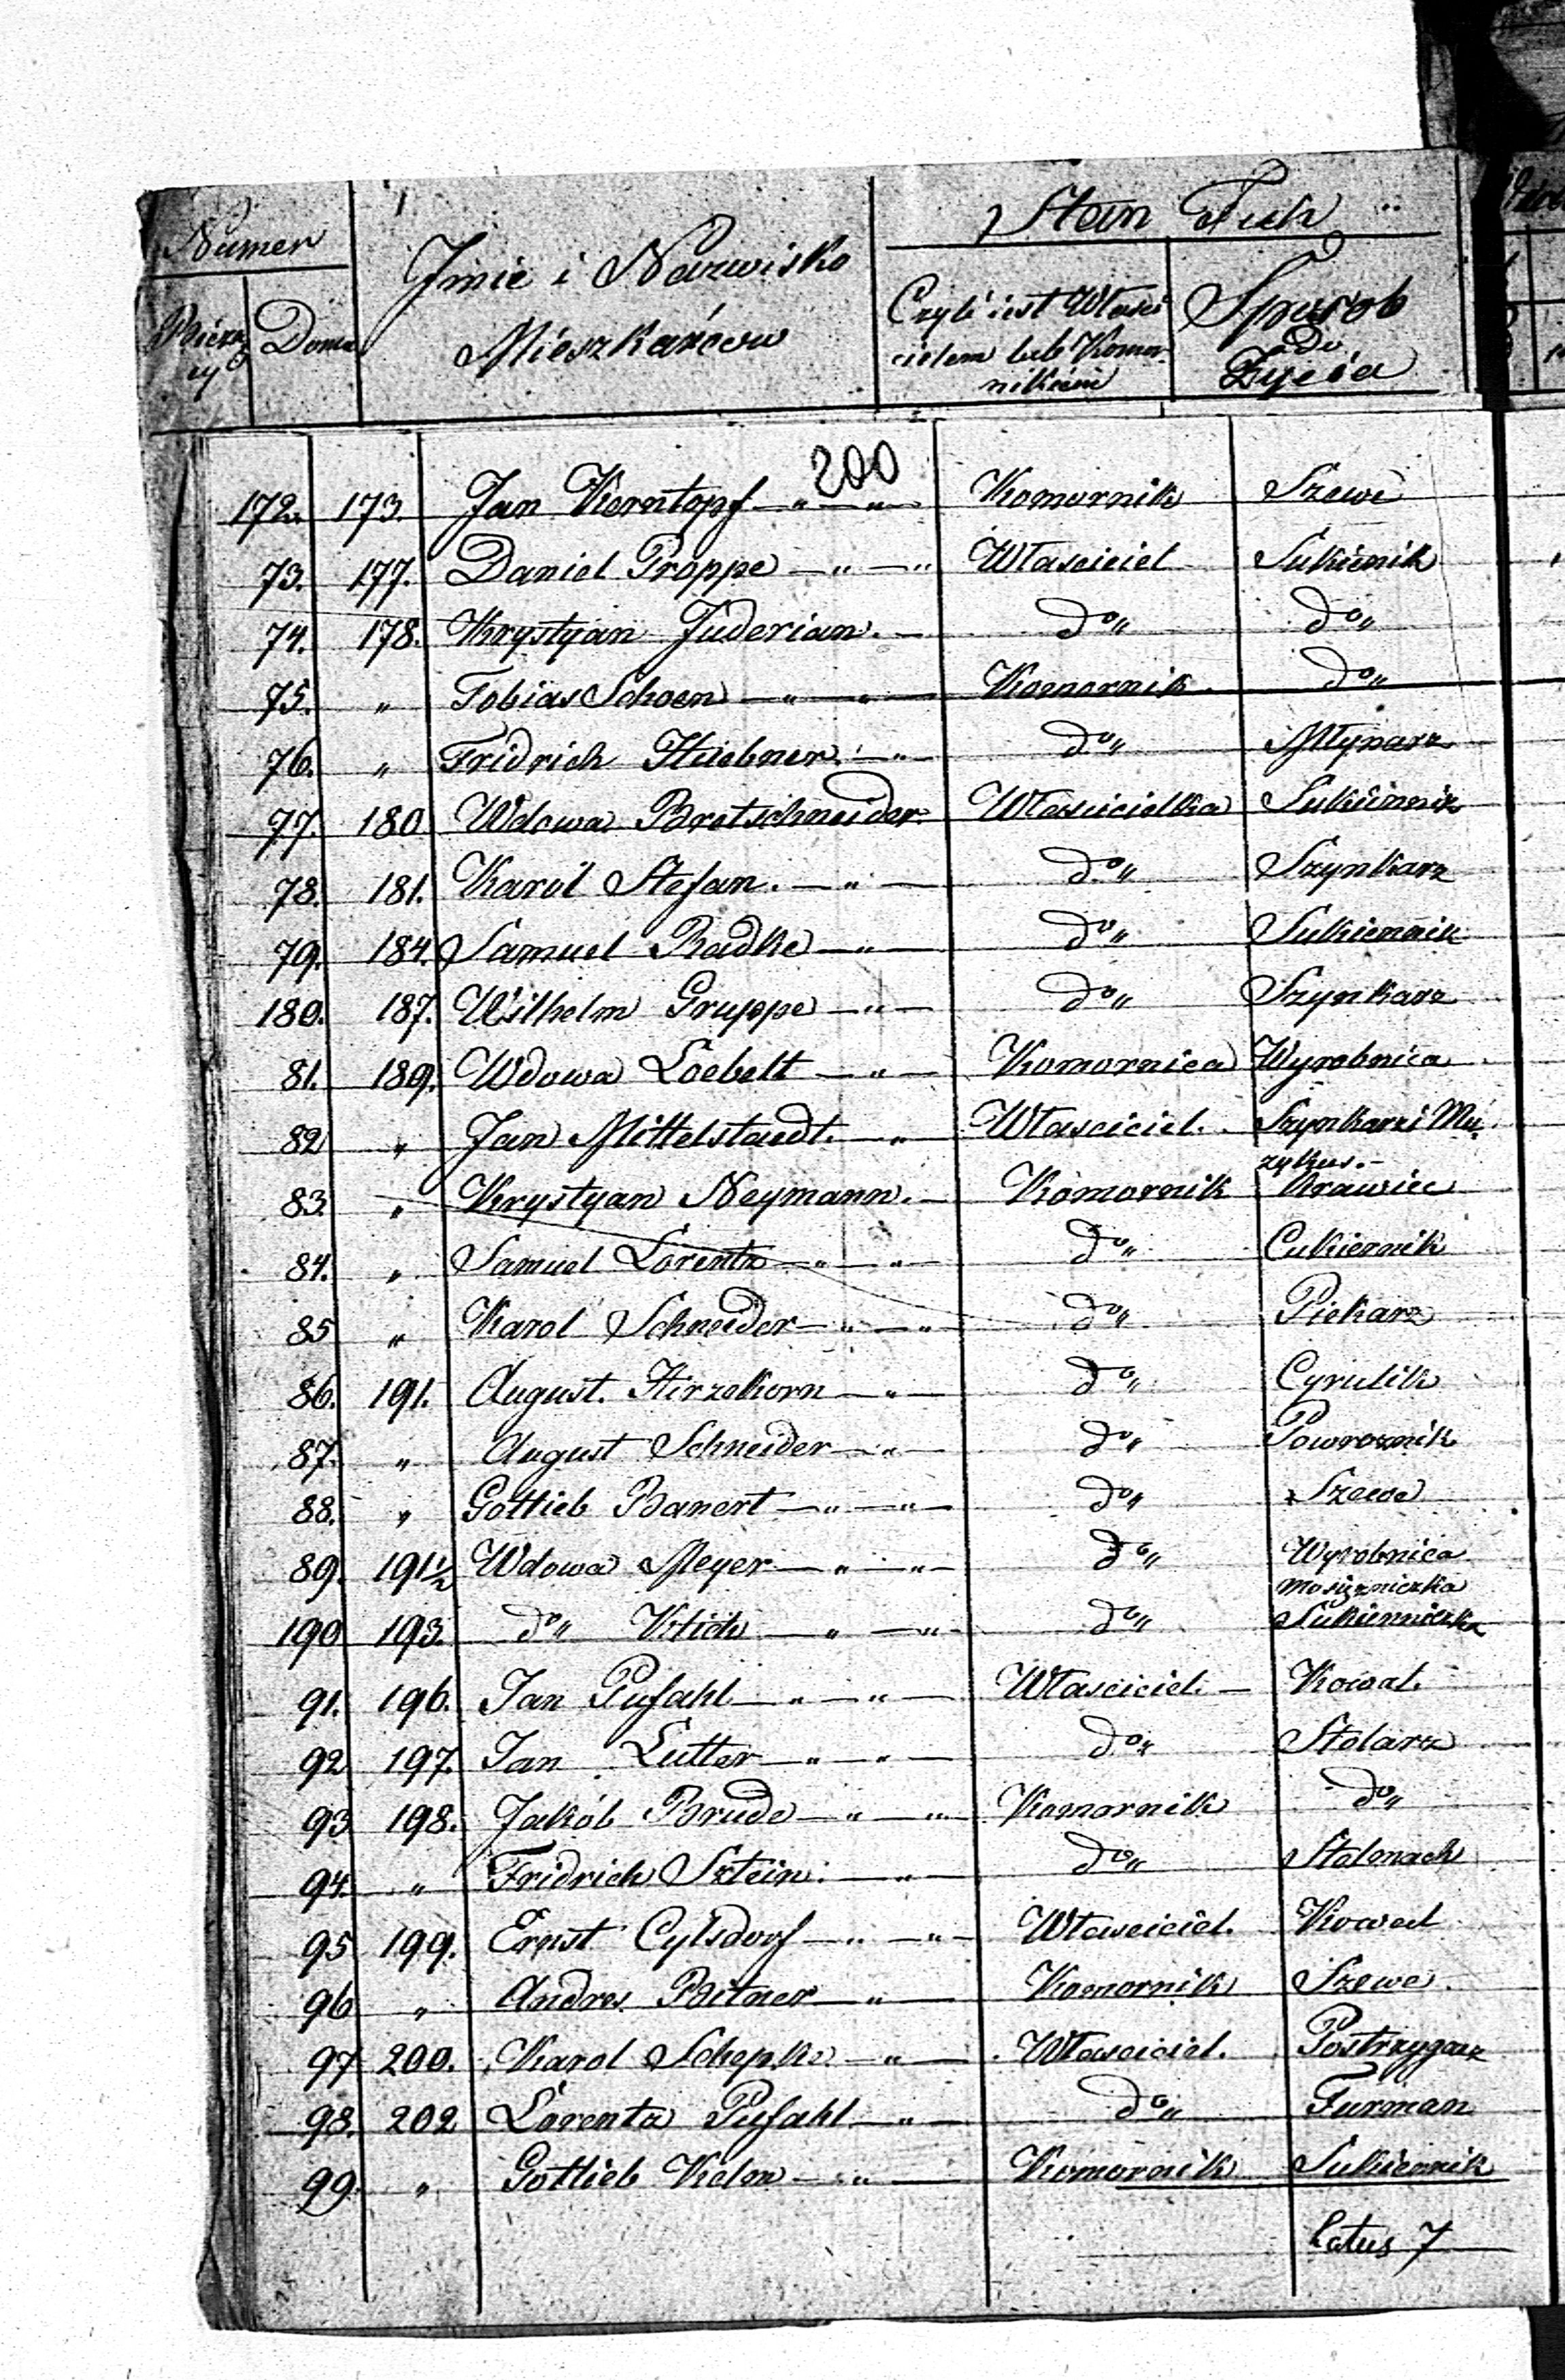 Numer
Imie i Nazwisko Mieszkańcow
Stan Tych
Bieżący
Domu
Czyli iest Właści
cielem lub Komor-
nikiem
Sposob
do
Życia
200
172. 173. Jan Kerntopf — " — " Komornik Szewc
73. 177. Daniel Proppe — " — " Własciciel Sukiennik
74. 178. Krystyan Juderian. — do " do "
75. " Tobias Schoen — " — " Komornik do "
76. " Fridrich Huebner. — " — do " Młynarz
77. 180 Wdowa Bretschneider Własciicielka Sukiennik
78. 181. Karol Stefan. — " — do " Szynkarz
79. 184. Samuel Radke — " — do " Sukiennik
180. 187. Wilhelm Gruppe — " — do " Szynkarz
81. 189. Wdowa Loebelt — " — Komornica Wyrobnica
82 " Jan Mittelstaedt. — " Własciciel. Szynkarz i Mu-
zykus. —
83. " Krystyan Neymann. — Komornik Krawiec
84. " Samuel Lorentz — " — " do " Cukiernik
85 " Karol Schneider — " — " do " Piekarz
86. 191. August. Hirzekorn — " — do " Cyrulik
87. " August Schneider — " — do " Powroznik
88. " Gottlieb Banert — " — " do " Szewc
89. 191½ Wdowa Meyer — " — " — do " Wyrobnica
mosiężniczka
190 193. do " Klich — " — " do " Sukienniczka
91. 196. Jan Pufahl — " — " — Własciciel. — Kowal.
92 197. Jan Lutter — " — " — do " Stolarz
93 198. Jakób Brude — " — " Komornik do "
94. " Fridrich Sztein. — " — do " Stelmach
95 199. Ernst Cylsdorf — " — " — Własciciel. Kowal
96 " Andres Bitner — " — Komornik Szewc
97 200. Karol Schepke — " — Własciciel. Postrzygacz
98. 202 Lorentz Pufahl — " — do " Furman
99. " Gottlieb Kelm — " — Komornik Sukiennik
Latus 7